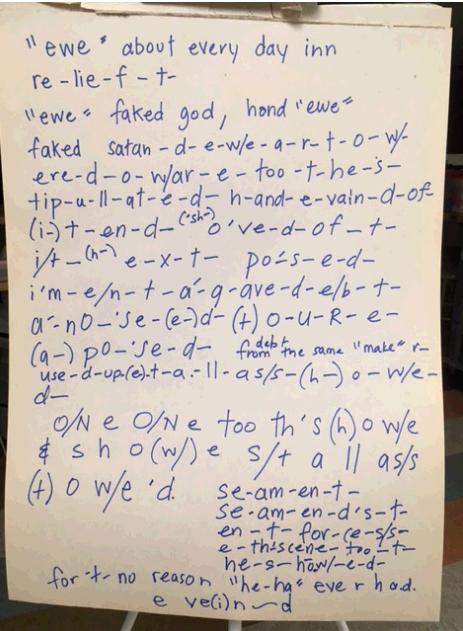 "ewe" about every day inn
re-lie-f-t-
"ewe" faked god, hond "ewe"
faked satan-d-e-w/e-a-r-t-o-w/-
ere-d-o-w/ar-e-too-t-he-s-
tip-u-ll-at-e-d- h-and-e-vain-d-of-
(i-)t-en-d-("sh") o've-d-of-t-
i/t-(h-) e-x-t- po's-e-d-
i'm-e/n-t-a'-g-ave-d-e/b-t-
a'-no-'se-(e-)d-(t) o-u-R-e-
(a-) po-'se-d- from debt the same "make" r-
use-d-up.(e).t-a.-ll-as/s-(h-)o-w/e-
d-
O/N e O/N e too th's (h) o w/e
& s h o (w/) e s/t a ll as/s
(t) o w/e 'd.
se-am-en-t-
se-am-en-d's-t-
en-t-for-ce-s/s-
e-thiscene-too-t-
he-s-how/-e-d-
for-t-no reason "he-ha" eve r h a d.
e ve(i)n-d